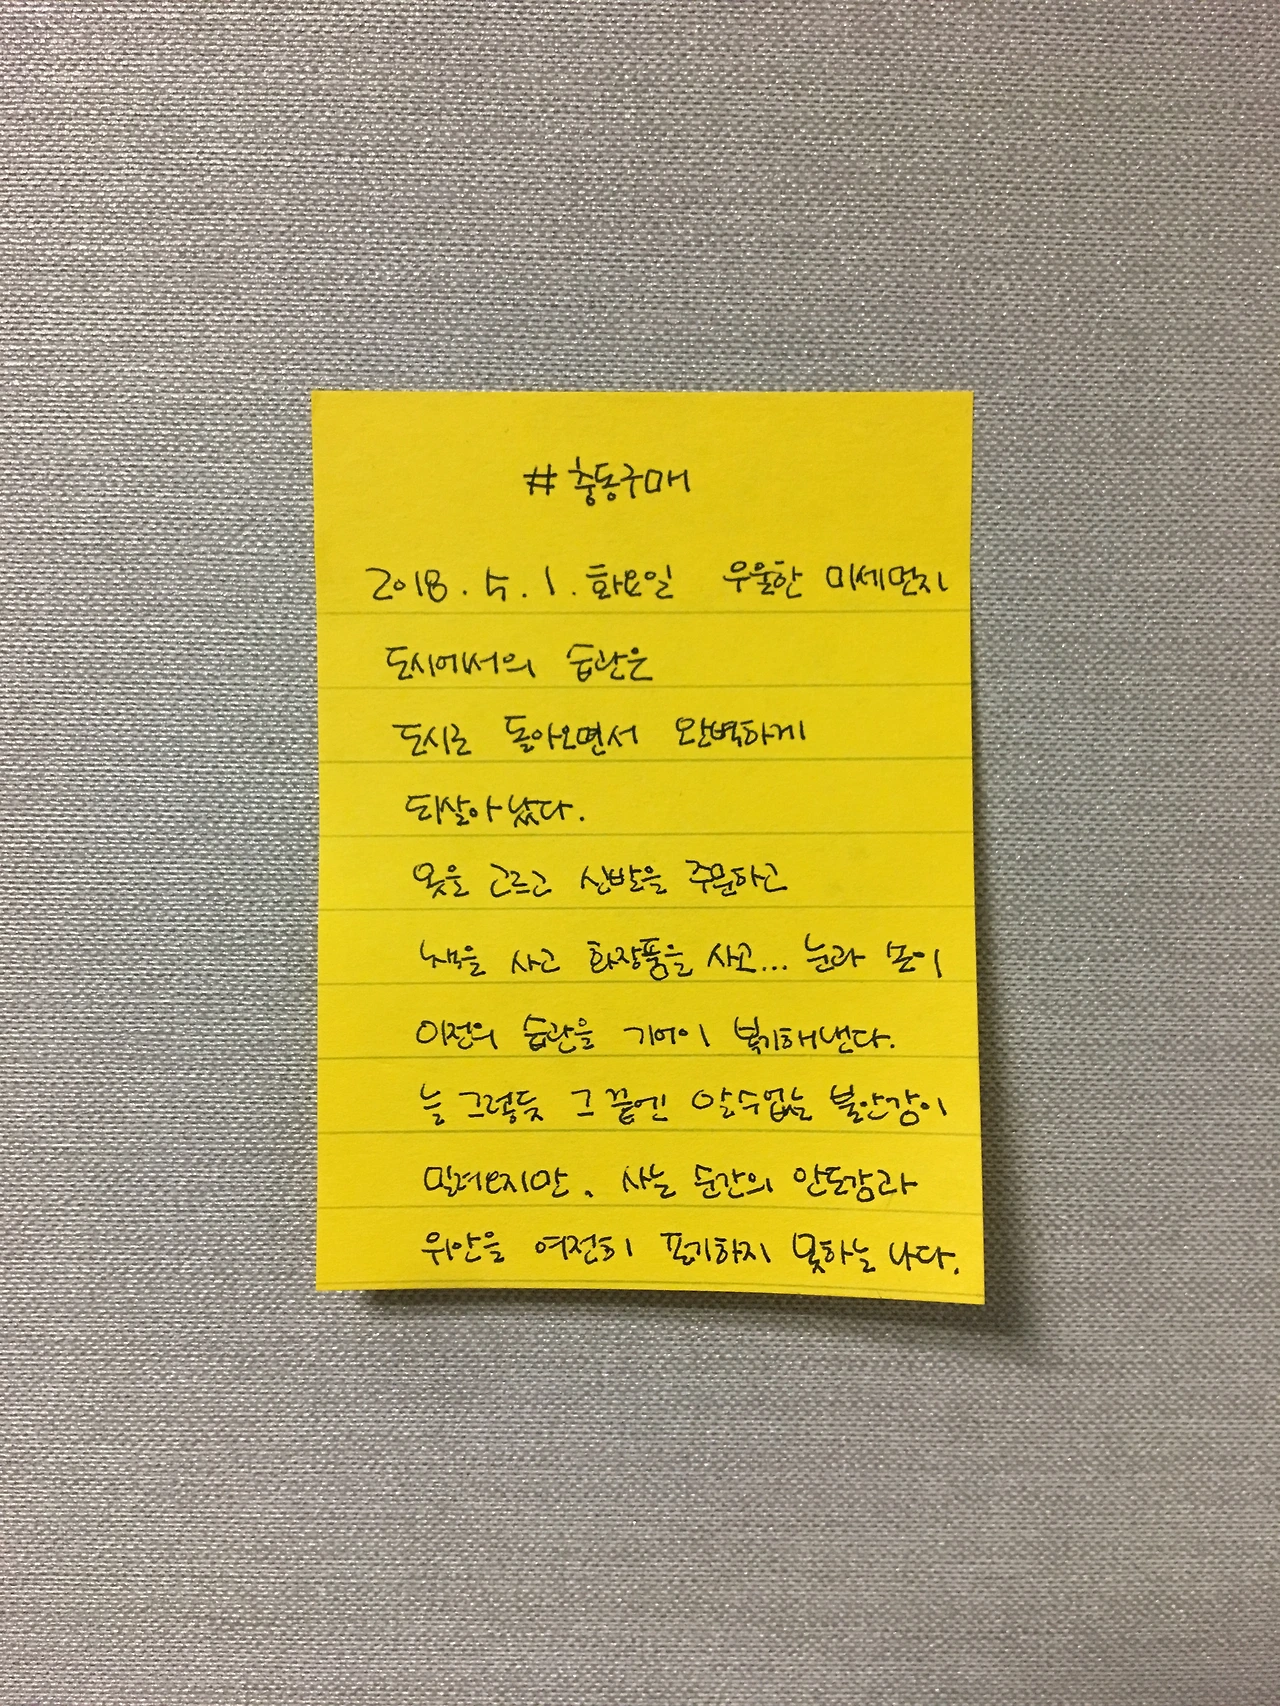 #충동구매
2018. 5. 1. 화요일 우울한 미세먼지
도시에서의 습관은
도시로 돌아오면서 완벽하게
되살아났다.
옷을 고르고 신발을 주문하고
책을 사고 화장품을 사고... 눈과 손이
이전의 습관을 기어이 복기해낸다.
늘 그렇듯 그 끝엔 알수없는 불안감이
밀려오지만, 사는 순간의 안도감과
위안을 여전히 포기하지 못하는 나다.